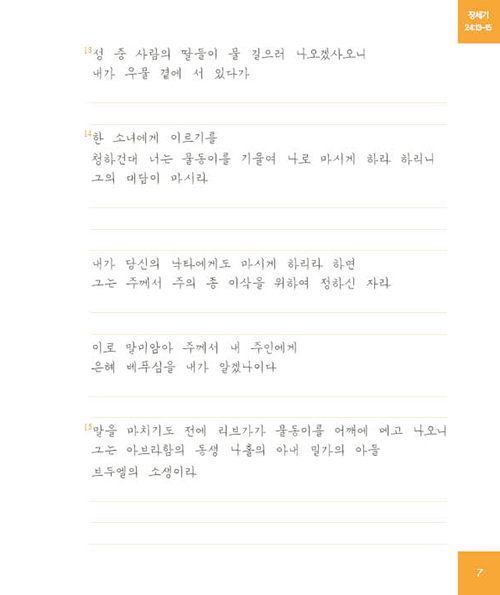 창세기
24:13-15
13 성 중 사람의 딸들이 물 길으러 나오겠사오니
내가 우물 곁에 서 있다가
14 한 소녀에게 이르기를
청하건대 너는 물동이를 기울여 나로 마시게 하라 하리니
그의 대답이 마시라
내가 당신의 낙타에게도 마시게 하리라 하면
그는 주께서 주의 종 이삭을 위하여 정하신 자라
이로 말미암아 주께서 내 주인에게
은혜 베푸심을 내가 알겠나이다
15 말을 마치기도 전에 리브가가 물동이를 어깨에 메고 나오니
그는 아브라함의 동생 나홀의 아내 밀가의 아들
브두엘의 소생이라
7